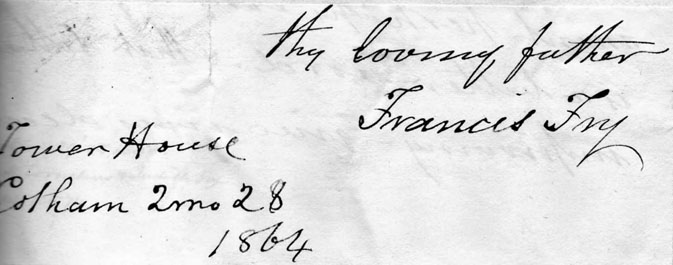 thy loving father
Francis Fry
Tower House
Cotham 2mo 28
1864